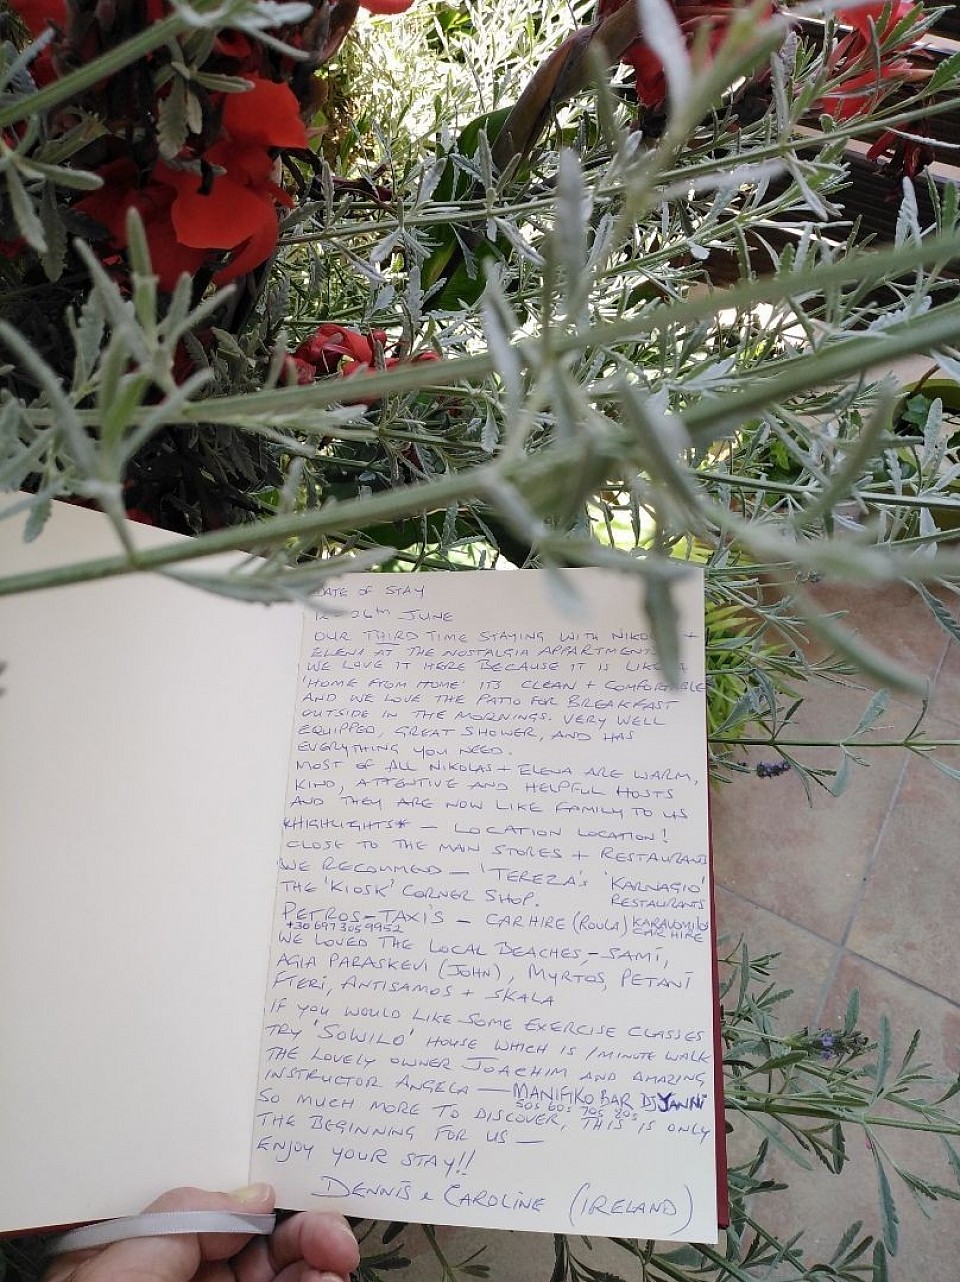 DATE OF STAY
26TH JUNE
OUR THIRD TIME STAYING WITH +
ELENI AT THE NOSTALGIA APPARTMENTS
WE LOVE IT HERE BECAUSE IT IS LIKE
'HOME FROM HOME' ITS CLEAN + COMFORTABLE
AND WE LOVE THE PATIO FOR BREAKFAST
OUTSIDE IN THE MORNINGS. VERY WELL
EQUIPPED, GREAT SHOWER, AND HAS
EVERYTHING YOU NEED.
MOST OF ALL NIKOLAS + ELENA ARE WARM,
KIND, ATTENTIVE AND HELPFUL HOSTS
AND THEY ARE NOW LIKE FAMILY TO US
*HIGHLIGHTS* - LOCATION LOCATION!
CLOSE TO THE MAIN STORES + RESTAURANTS
WE RECOMMEND - 'TEREZA'S 'KARNAGIO'
THE 'KIOSK' CORNER SHOP. RESTAURANTS
PETROS-TAXI'S - CAR HIRE (ROULA) KARAVOMILOS
+30 697 305 9952 CAR HIRE
WE LOVED THE LOCAL BEACHES, - SAMI,
AGIA PARASKEVI (JOHN), MYRTOS, PETANI
FTERI, ANTISAMOS + SKALA
IF YOU WOULD LIKE SOME EXERCISE CLASSES
TRY 'SOWILO' HOUSE WHICH IS 1 MINUTE WALK
THE LOVELY OWNER JOACHIM AND AMAZING
INSTRUCTOR ANGELA - MANIFIKO BAR DJ YANNI
50s 60s 70s 80s
SO MUCH MORE TO DISCOVER, THIS IS ONLY
THE BEGINNING FOR US -
ENJOY YOUR STAY!!
DENNIS & CAROLINE (IRELAND)